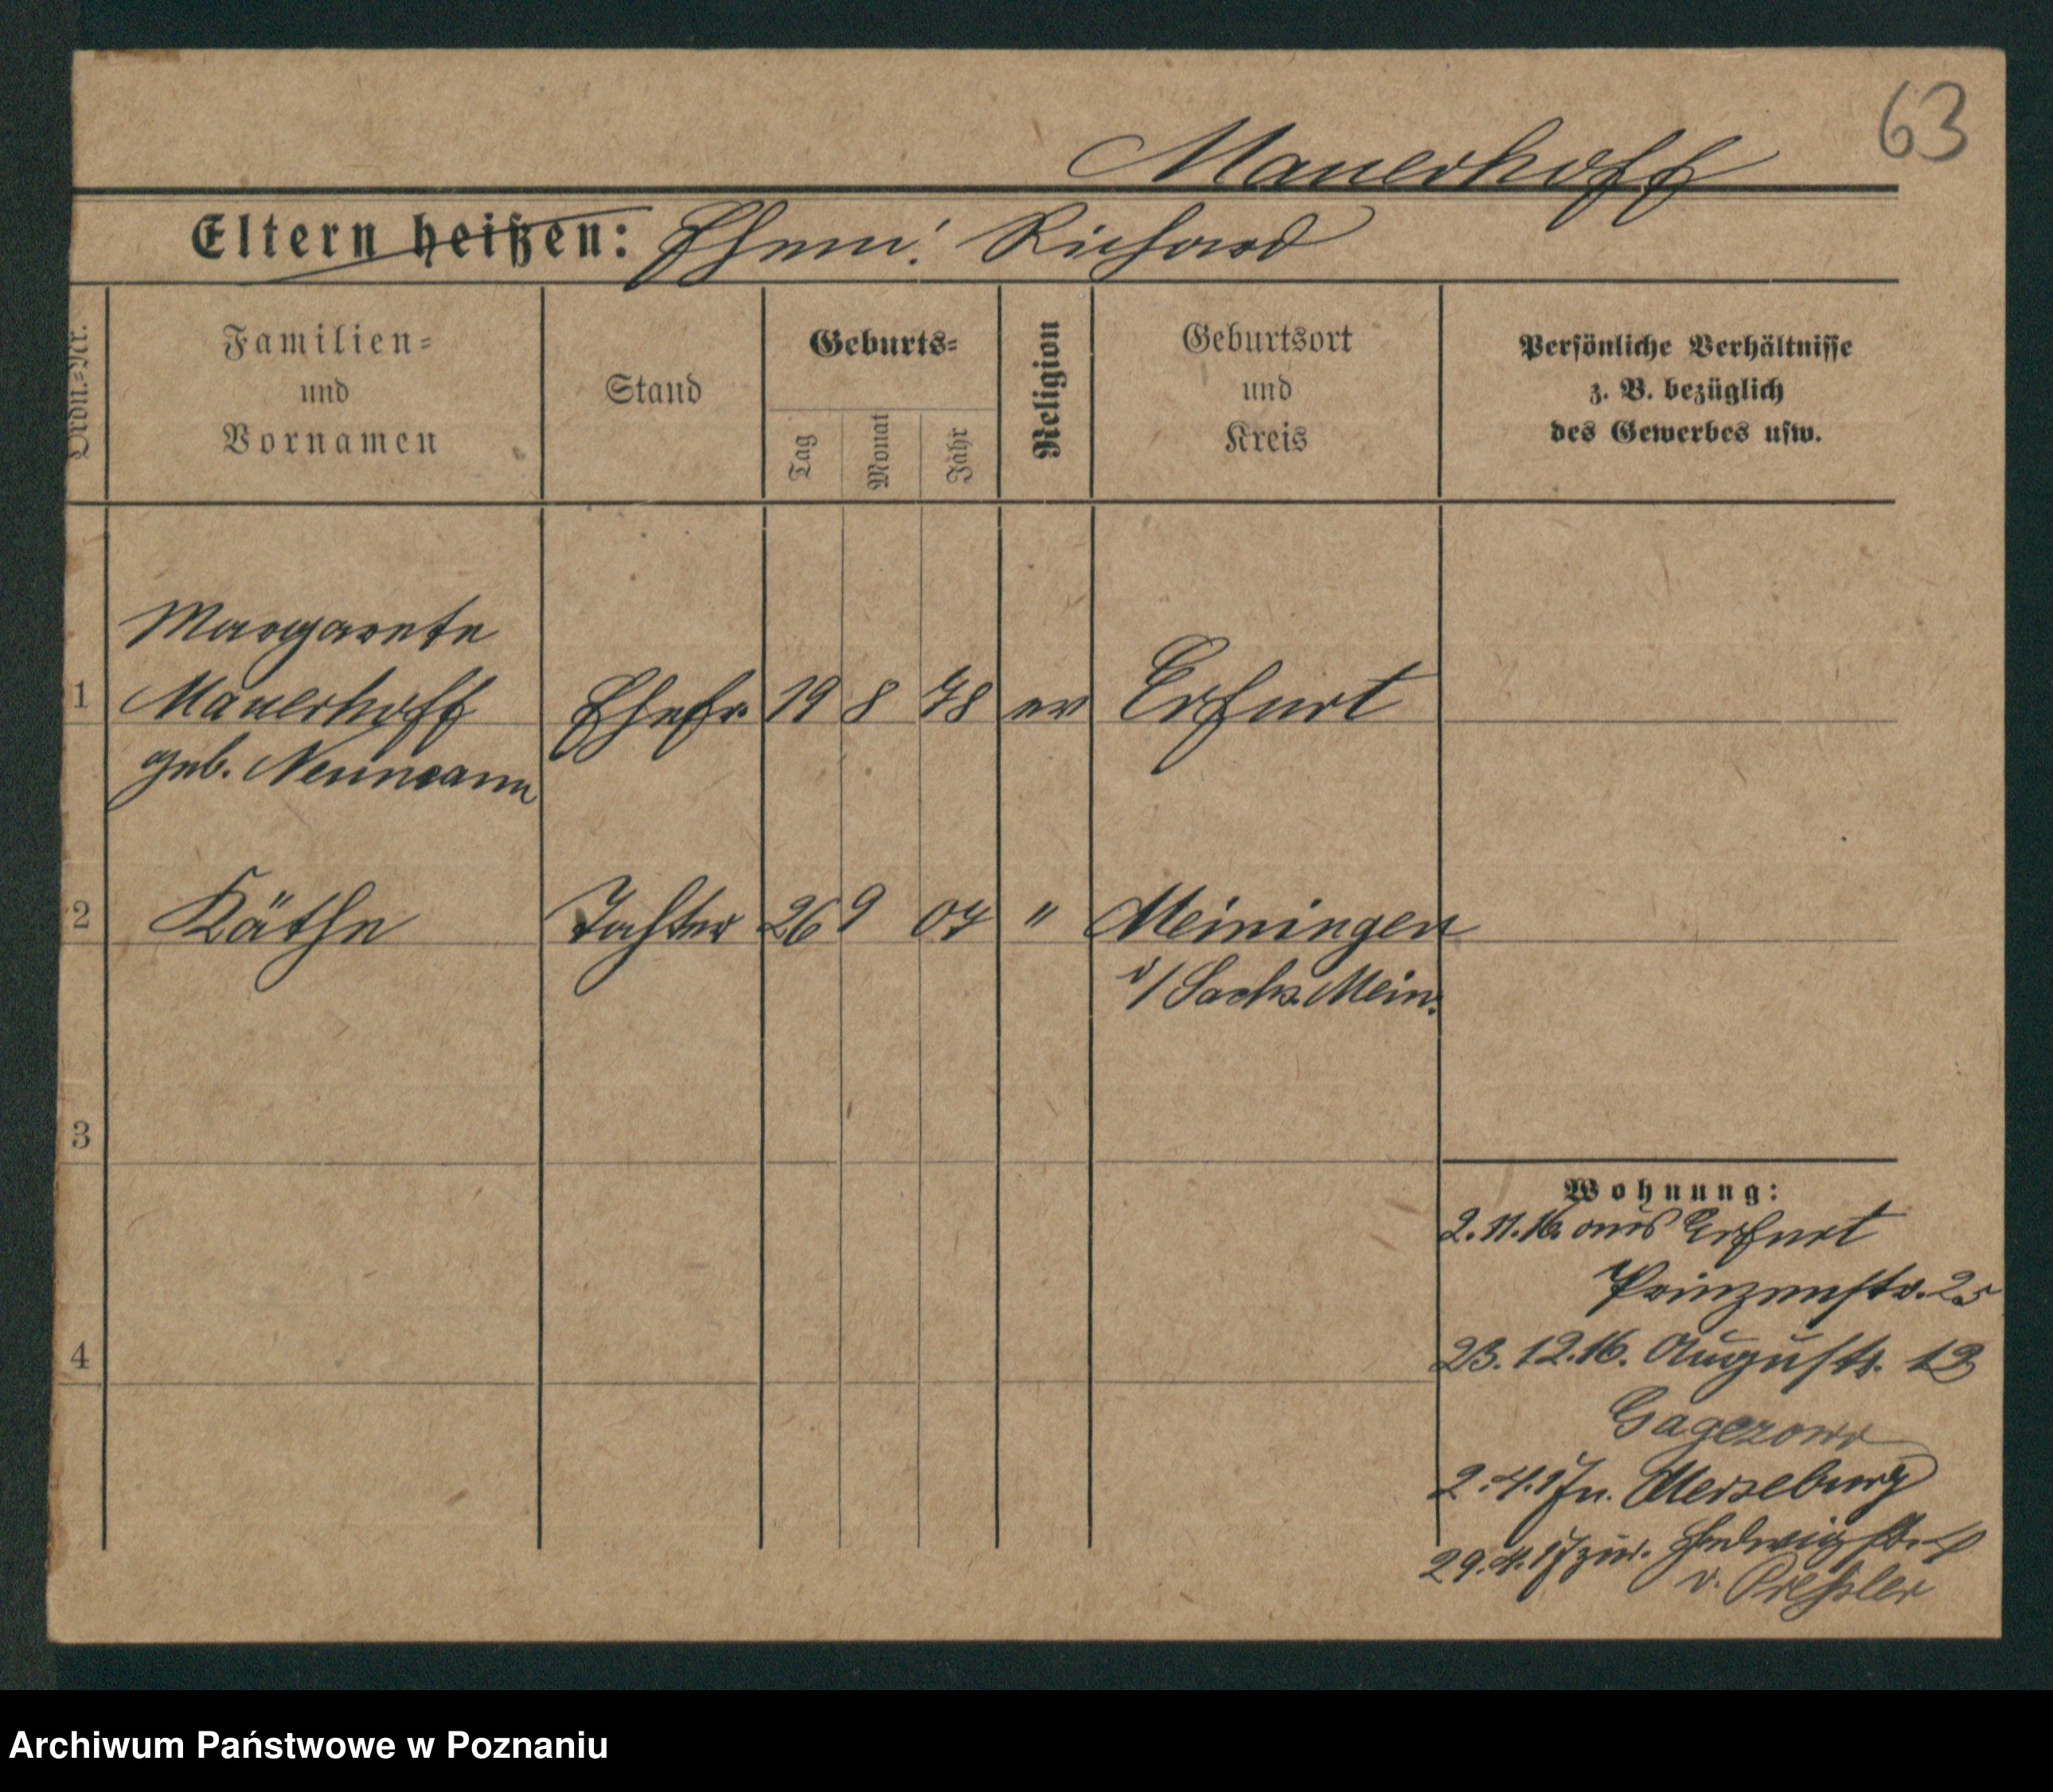 63
Mauerhoff
Eltern heißen: Ehem: Richard
Ordn.-Nr.
Familien-
und
Vornamen
Stand
Geburts-
Tag
Monat
Jahr
Religion
Geburtsort
und
Kreis
Persönliche Verhältnisse
z. B. bezüglich
des Gewerbes usw.
Margarete
1 Mauerhoff Ehefr. 19 8 78 ev Erfurt
geb. Neumann
2 Käthe Tochter 26 9 07 " Meiningen
i/ Sachs. Mein.
3
Wohnung:
2.11.16. aus Erfurt
Prinzenstr. 25
4
23.12.16. Augustr. 12
2.4.17 n. Merseburg
29.4.17 zur. Hedwigstr.
v. Pressler
Archiwum Państwowe w Poznaniu